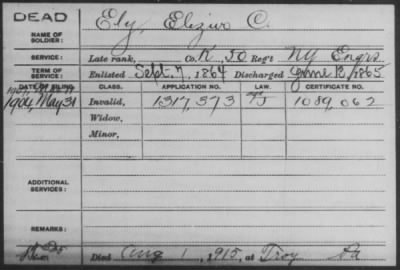 DEAD
NAME OF SOLDIER: Ely, Elizur C.
SERVICE: Late rank, Co. K, 50 Reg't NY Engrs.
TERM OF SERVICE: Enlisted Sept. 7, 1864 Discharged June 12, 1865
DATE OF FILING CLASS. APPLICATION NO. LAW. CERTIFICATE NO.
1904, May 31 Invalid, 1317,573 1089,062
Widow,
Minor,
ADDITIONAL SERVICES:
REMARKS:
Died Aug 1, 1915, at Troy Pa